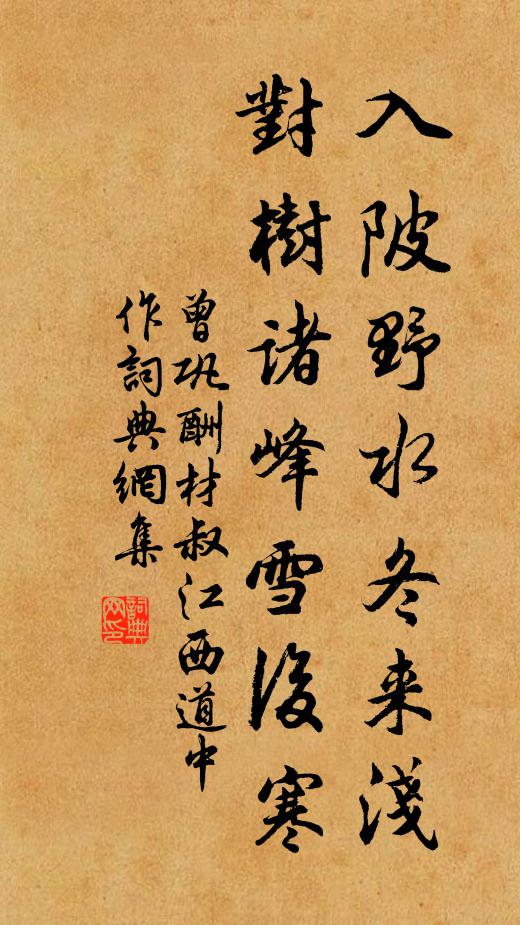 入陂野水冬来淺
對樹诸峰雪後寒
曾巩酬材叔江西道中
作詞典網集
詞典網印